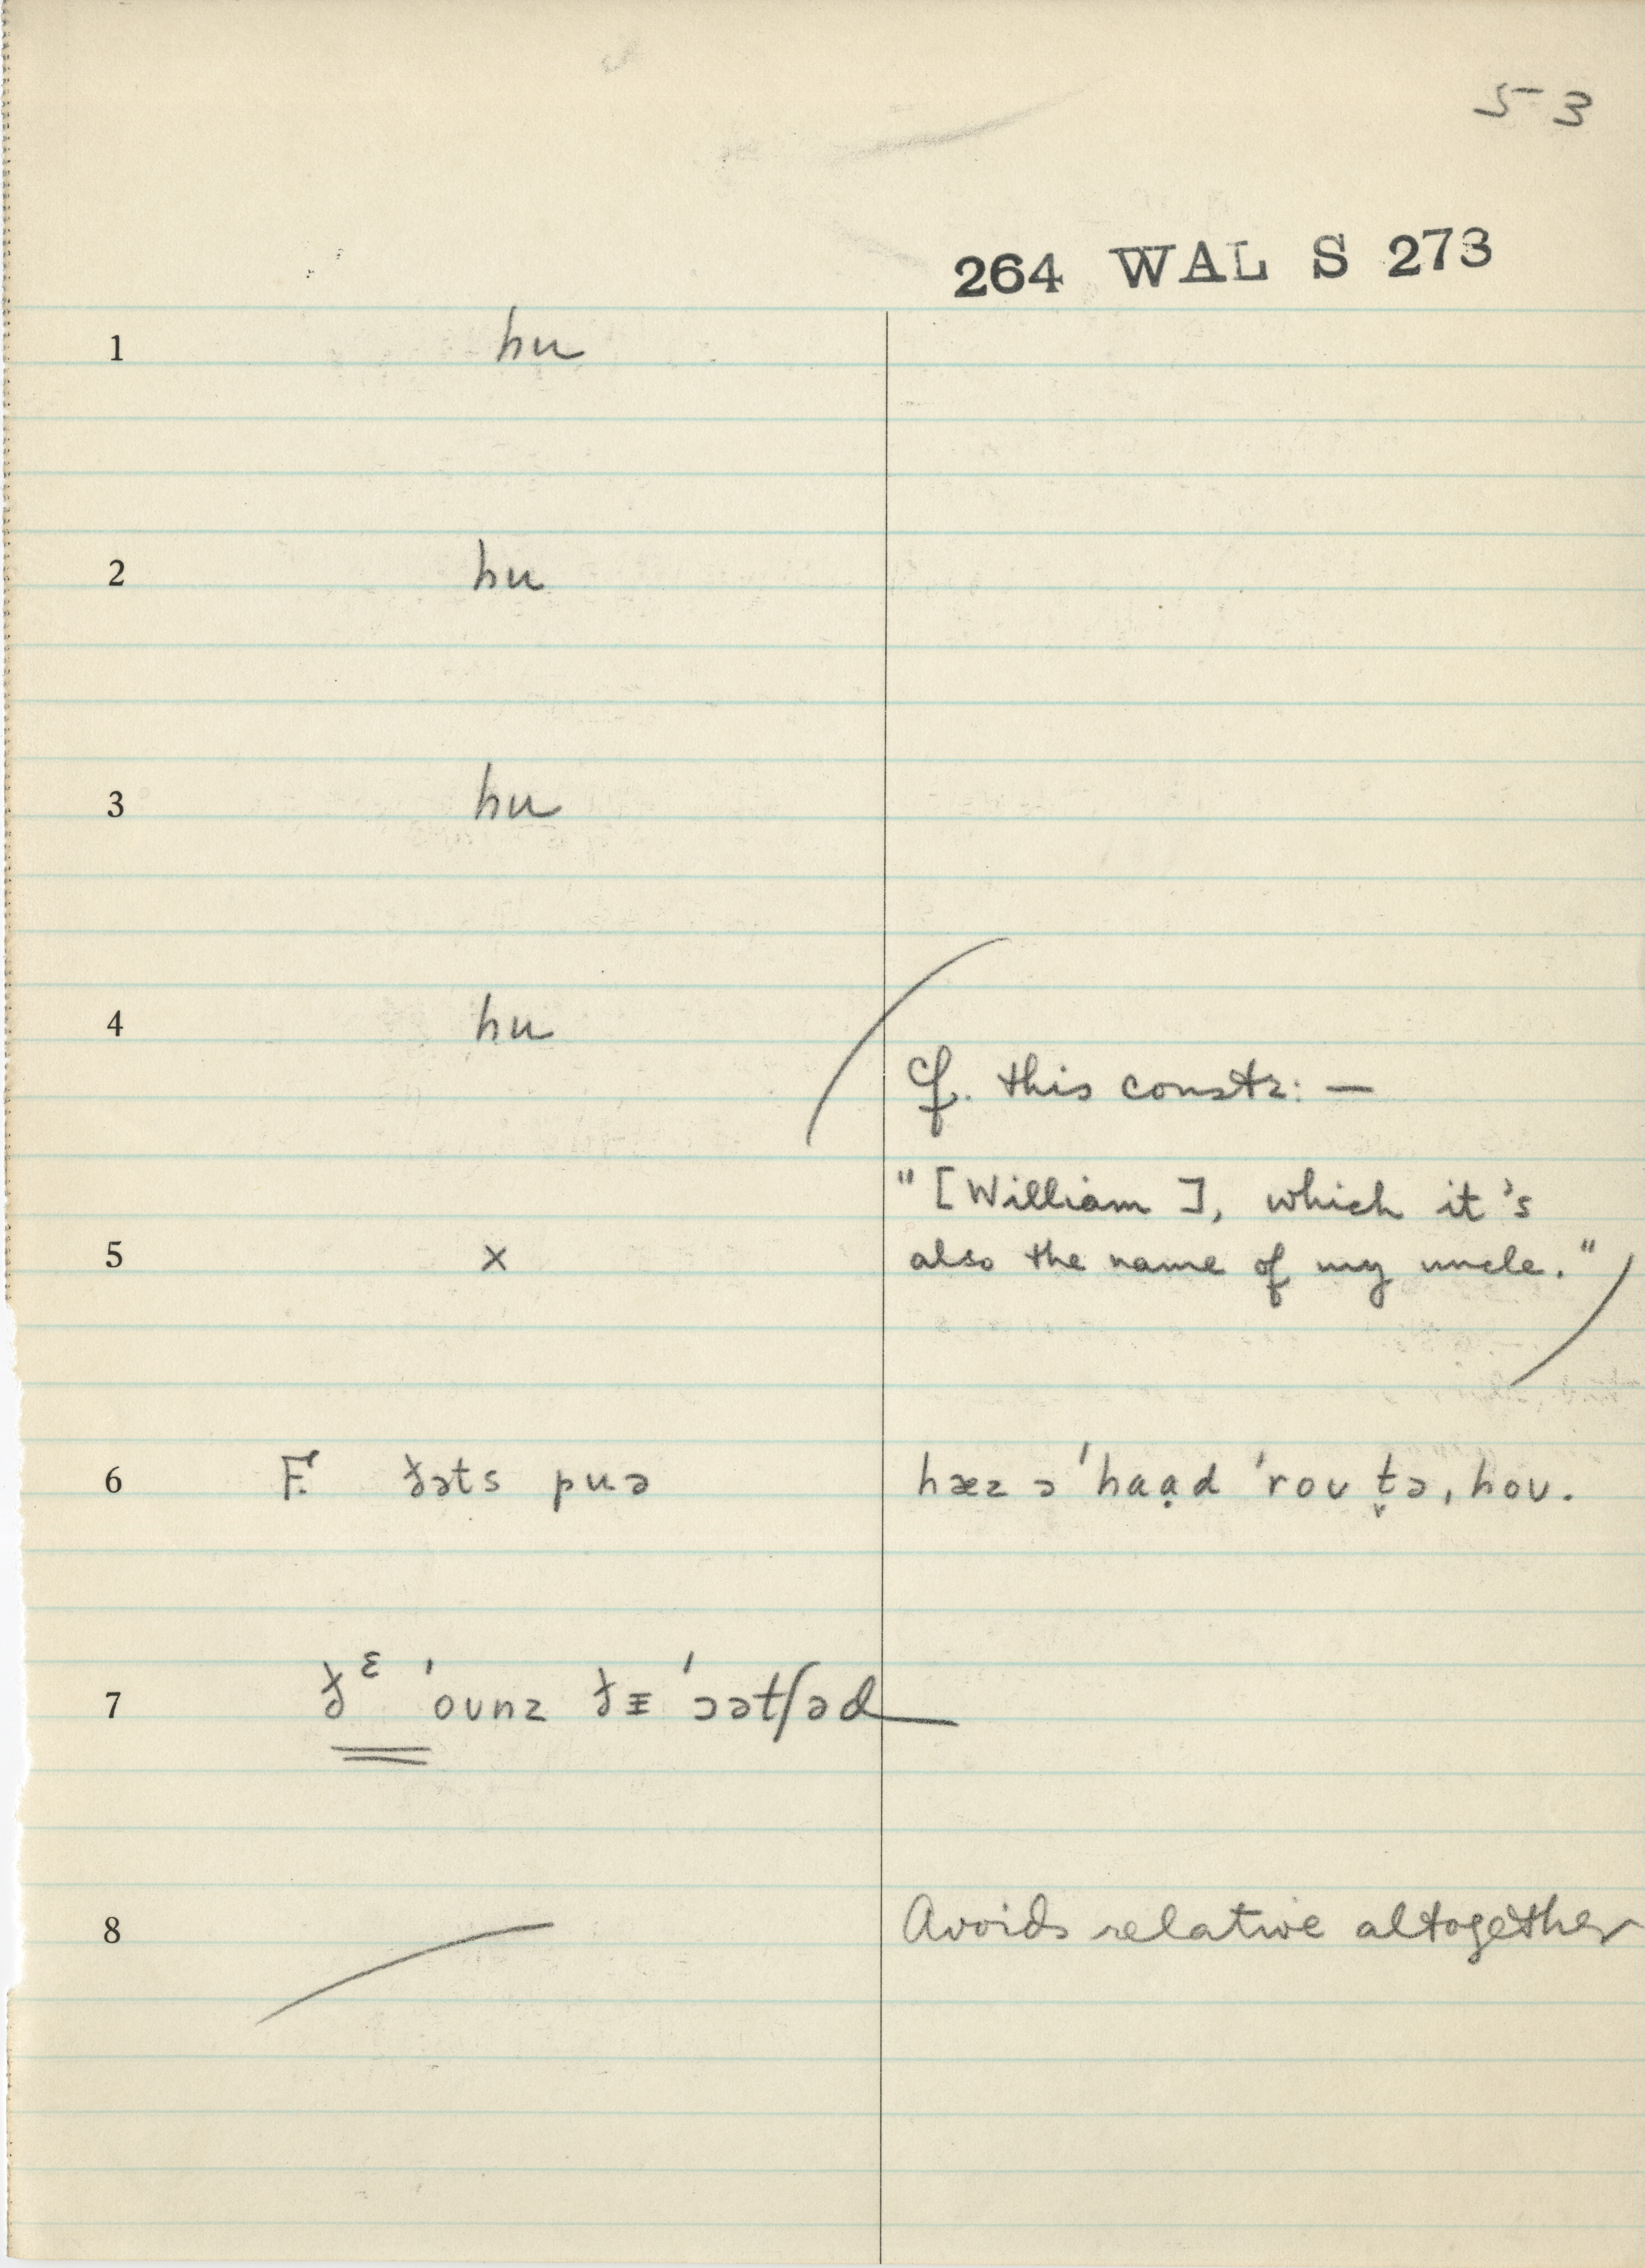 53
264 WAL S 273
1 hu
2 hu
3 hu
4 hu
cf. this constr: —
"[William], which it's
5 x
also the name of my uncle."
6 F. ðəts puə hæz ə ˈhaạd ˈroʊ t̬ə, hoʊ.
7 ðᵋ ˈoʊnz ðɪ ˈɔətʃəd
8 Avoids relative altogether